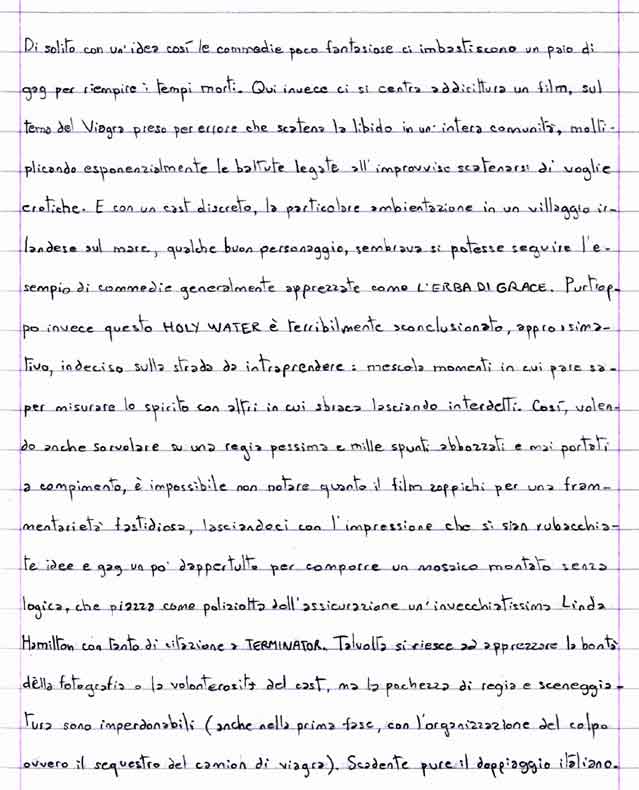 Di solito con un'idea così le commedie poco fantasiose ci imbastiscono un paio di
gag per riempire i tempi morti. Qui invece ci si centra addirittura un film, sul
tema del Viagra preso per errore che scatena la libido in un'intera comunità, molti-
plicando esponenzialmente le battute legate all'improvviso scatenarsi di voglie
erotiche. E con un cast discreto, la particolare ambientazione in un villaggio ir-
landese sul mare, qualche buon personaggio, sembrava si potesse seguire l'e-
sempio di commedie generalmente apprezzate come L'ERBA DI GRACE. Purtrop-
po invece questo HOLY WATER è terribilmente sconclusionato, approssima-
tivo, indeciso sulla strada da intraprendere: mescola momenti in cui pare sa-
per misurare lo spirito con altri in cui sbraca lasciando interdetti. Così, volen-
do anche sorvolare su una regia pessima e mille spunti abbozzati e mai portati
a compimento, è impossibile non notare quanto il film zoppichi per una fram-
mentarietà fastidiosa, lasciandoci con l'impressione che si sian rubacchia-
te idee e gag un po' dappertutto per comporre un mosaico montato senza
logica, che piazza come poliziotta dell'assicurazione un'invecchiatissima Linda
Hamilton con tanto di citazione a TERMINATOR. Talvolta si riesce ad apprezzare la bontà
della fotografia o la volonterosità del cast, ma la pochezza di regia e sceneggia-
tura sono imperdonabili (anche nella prima fase, con l'organizzazione del colpo
ovvero il sequestro del camion di viagra). Scadente pure il doppiaggio italiano.